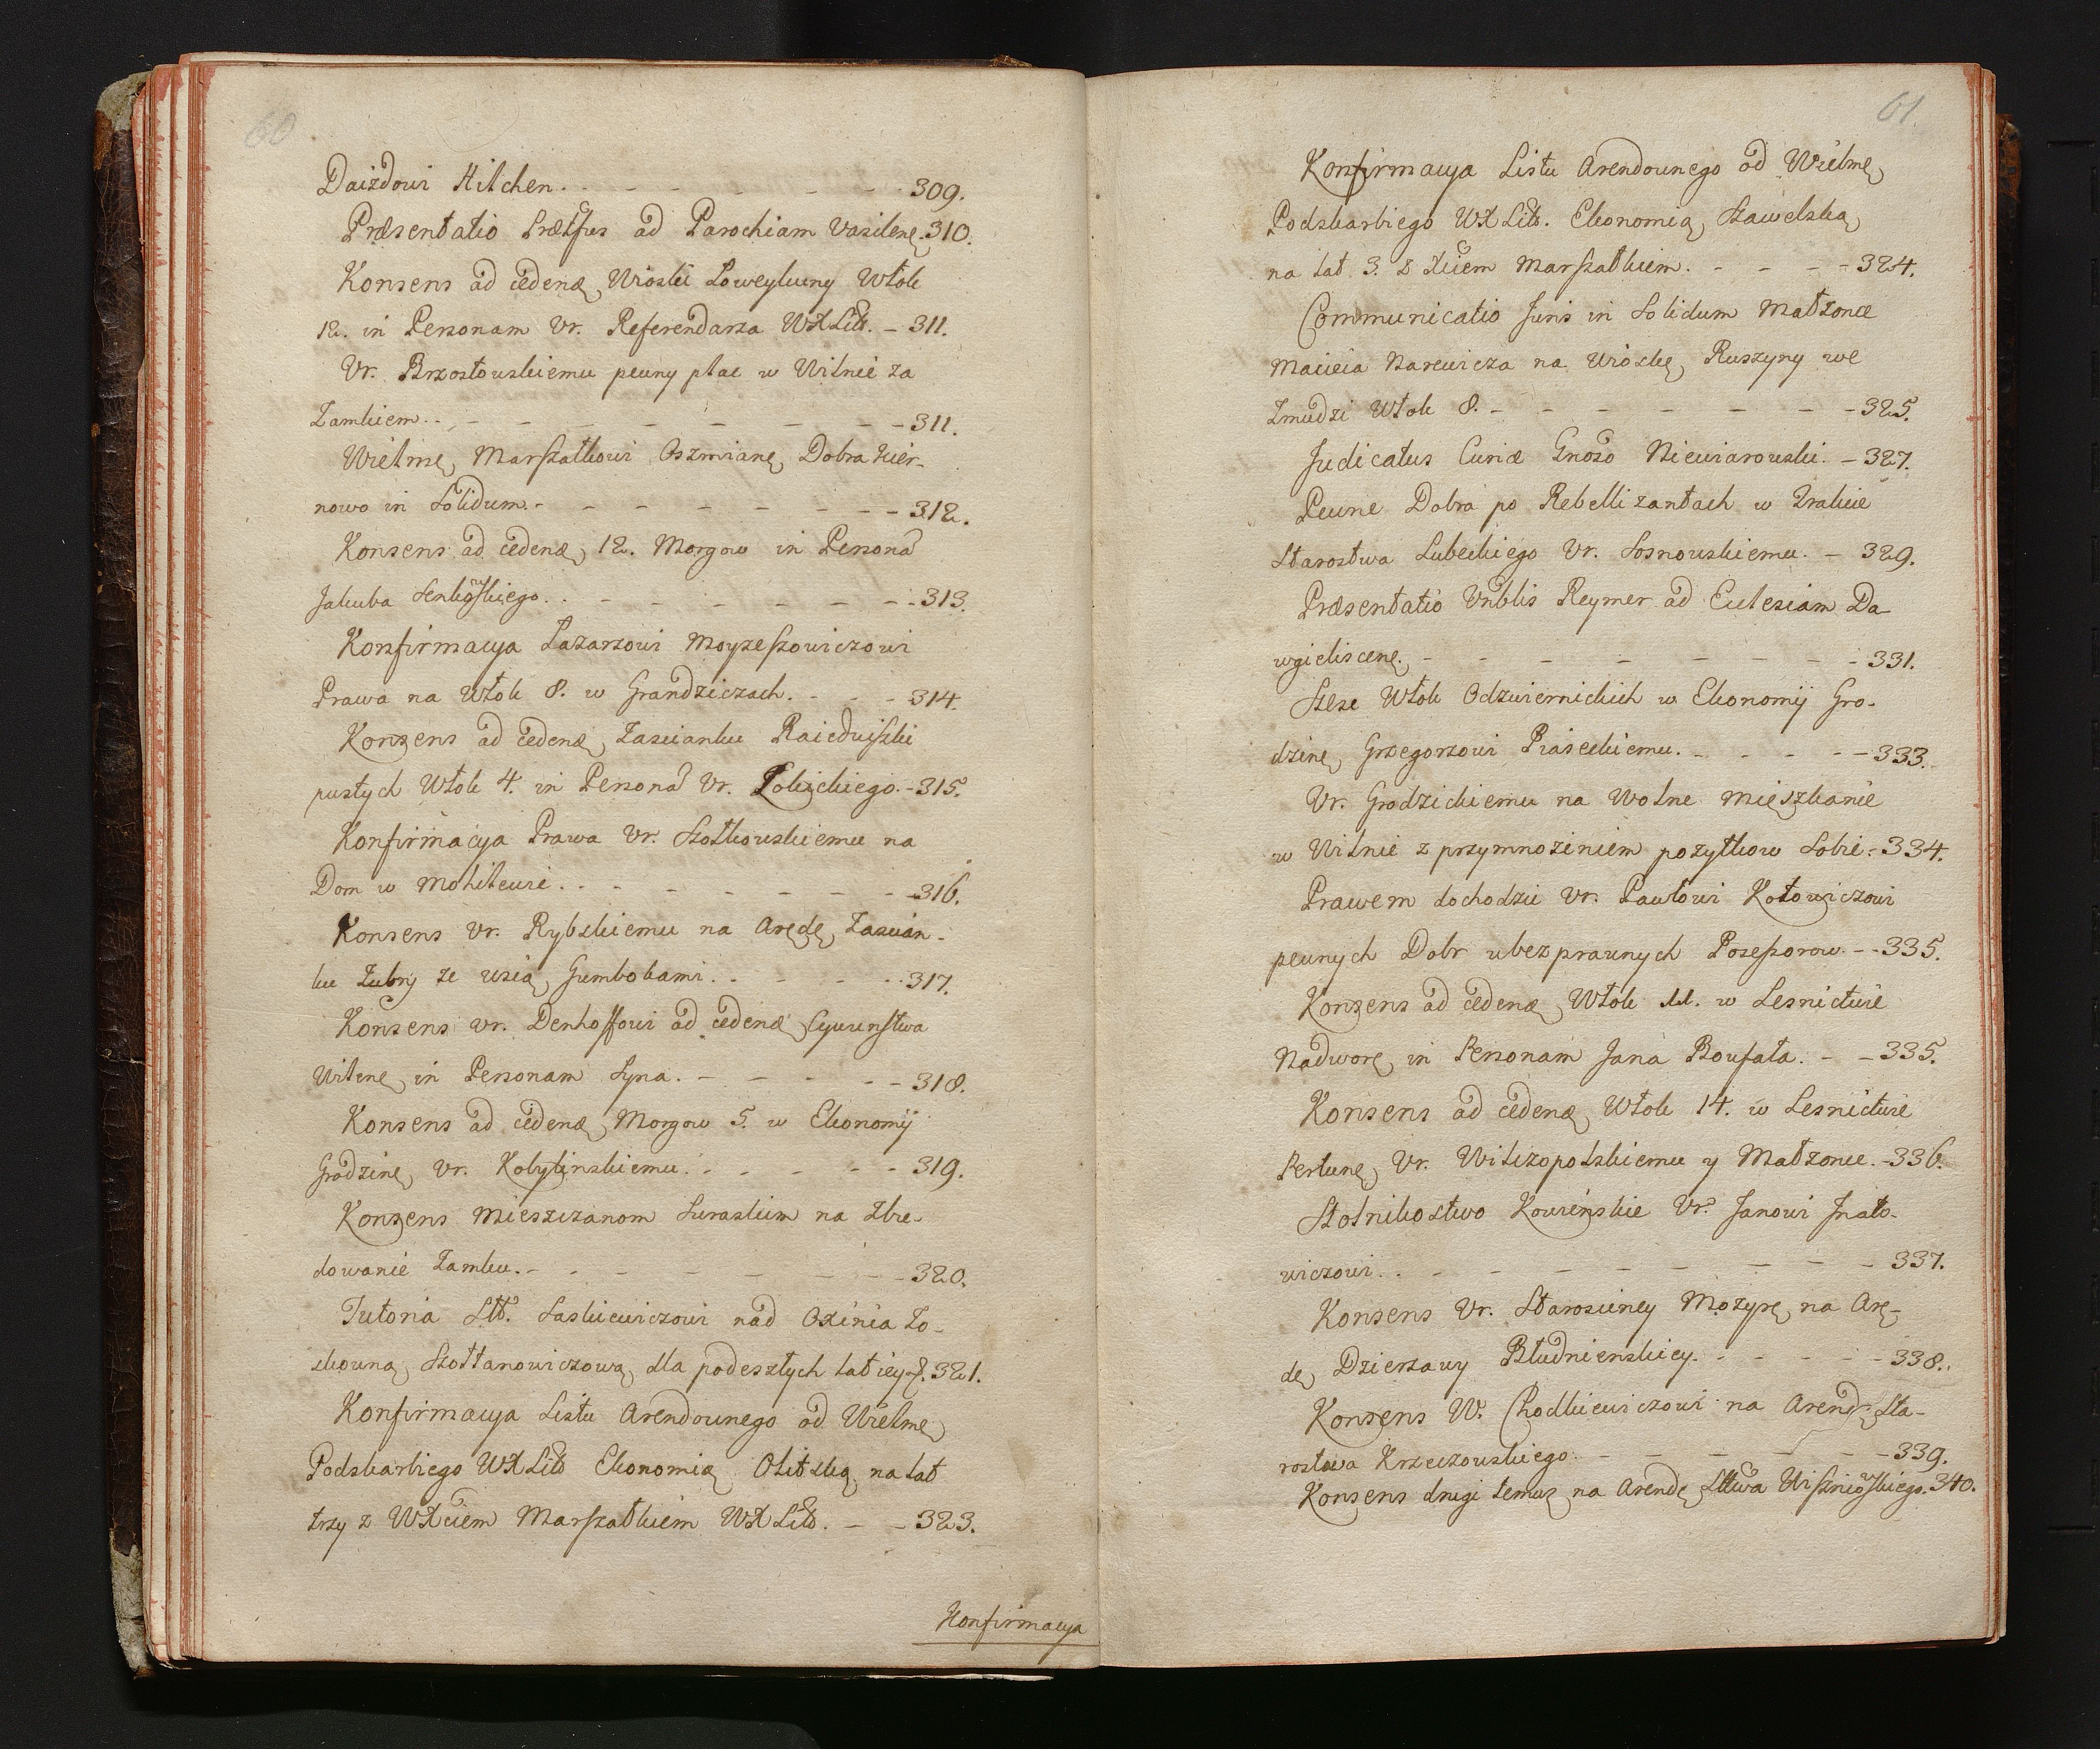 60
Daizdowi Hilchen. - - - - - - 309.
Præsentatio ad Parochiam Vasilen. 310.
Konsens ad cedend. Wioski Poweykuny Włok
12. in Personam Vr. Referendarza WXLitt. - 311.
Vr. Brzostowskiemu pewny plac w Wilnie za
Zamkiem. - - - - - - - 311.
Wielme Marszałkowi Oszmiane Dobra Kier-
nowo in Solidum. - - - - - - - 312.
Konsens ad cedend. 12. Morgow in Persona
Jakuba Senkowskiego. - - - - - - 313.
Konfirmacya Łazarzowi Moyzeszowiczowi
Prawa na Włok 8. w Grandziczach. - - - 314.
Konsens ad cedend. Zascianku Raiedwiszki
pustych Włok 4. in Persona Vr. - 315.
Konfirmacya Prawa Vr. Szotkowskiemu na
Dom w Mohilewie. - - - - - - 316.
Konsens Vr. Rybskiemu na Aręde Zascian-
ku Zubry ze wsią Gumbokami. - - - - 317.
Konsens Vr. Denhoffowi ad cedend. Cywunstwa
Wilene in Personam Syna. - - - - 318.
Konsens ad cedend. Morgow 5. w Ekonomij
Grodzine Vr. Kobylinskiemu. - - - - 319.
Konsens Mieszczanom Suraskim na Zbu-
dowanie Zamku. - - - - - - - 320.
Tutoria Stt. Saskiewiczowi nad Oxinia Zo-
chowną Szołtanowiczową dla podeszłych lat iey. 321.
Konfirmacya Listu Arendownego od Wielme
Podskarbiego WXLitt Ekonomią Olitską na lat
trzy z WXciem Marszałkiem WXLitt. - - 323.
Konfirmacya
61.
Konfirmacya Listu Arendownego od Wielme
Podskarbiego WXLitt. Ekonomią Szawelską
na lat 3. z Xciem Marszałkiem. - - - - 324.
Communicatio Juris in Solidum Małżonce
Macieia Narewicza na Wioskę Ruszyny we
Zmudzi Włok 8. - - - - - - - 325.
Judicatus Curiæ Gnoso Niewiarowski. - 327.
Pewne Dobra po Rebellizantach w Trakcie
Starostwa Lubeckiego Vr. Sosnowskiemu. - 329.
Præsentatio Vnblis Reymer ad Ecclesiam Da-
wgieliscen. - - - - - - - 331.
Szesc Włok Odzwiernickich w Ekonomij Gro-
dzine Grzegorzowi Piaseckiemu. - - - - 333.
Vr. Grodzickiemu na Wolne Mieszkanie
w Wilnie z przymnozeniem pozytkow Sobie. - 334.
Prawem dochodzic Vr. Pawłowi Kotowiczowi
pewnych Dobr u bezprawnych Posessorow. - - 335.
Konsens ad cedend. Włok 11. w Lesnictwie
Nadwore in Personam Jana Boufała. - - 335.
Konsens ad cedend. Włok 14. w Lesnictwie
Pertune Vr. Wilczopolskiemu y Małżonce. - 336.
Stolnikostwo Kowienskie Vr. Janowi Jnato-
wiczowi. - - - - - - - - 337.
Konsens Vr. Staroscincy Mozyrs na Arę-
dę Dzierzawy Błudnienskiey. - - - - 338.
Konsens W. Chodkiewiczowi na Arend Sta-
rostwa Krzeczowskiego. - - - - - 339.
Konsens drugi temuz na Arendę Sttwa Wiszniowskiego. 340.